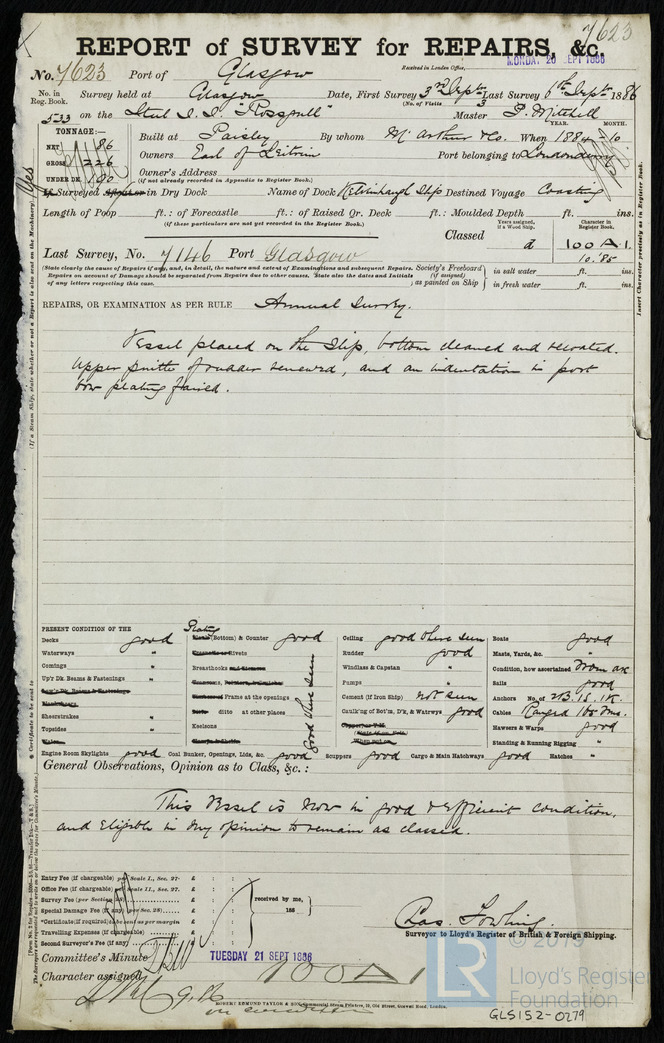 7623
REPORT of SURVEY for REPAIRS, &c.
No. 7623 Port of Glasgow Received in London Office, MONDAY 20 SEPT 1886
No. in Reg. Book. Survey held at Glasgow Date, First Survey 3rd Septr Last Survey 6th Septr 1886
(No. of Visits 3
533 on the Steel S.S. "Rosgull" Master P. Mitchell
TONNAGE:— YEAR. MONTH.
NET 86 Built at Paisley By whom McArthur & Co. When 1884 10
GROSS 226 Owners Earl of Leitrim Port belonging to Londonderry
UNDER DK 190 Owner's Address
(if not already recorded in Appendix to Register Book.)
If Surveyed Afloat or in Dry Dock Name of Dock Kelvinhaugh Slip Destined Voyage Coasting
Length of Poop ft.: of Forecastle ft.: of Raised Qr. Deck ft.: Moulded Depth ft. ins.
(if these particulars are not yet recorded in the Register Book.)
Years assigned, if a Wood Ship. Character in Register Book.
Classed 100 A 1.
10.'85
Last Survey, No. 7146 Port Glasgow
(State clearly the cause of Repairs if any, and, in detail, the nature and extent of Examinations and subsequent Repairs.
Repairs on account of Damage should be separated from Repairs due to other causes. State also the dates and Initials
of any letters respecting this case.
Society's Freeboard (if assigned) as painted on Ship in salt water ft. ins.
in fresh water ft. ins.
REPAIRS, OR EXAMINATION AS PER RULE Annual Survey.
Vessel placed on the Slip, bottom cleaned and recoated.
Upper pintle of rudder renewed, and an indentation in port
bow plating faired.
PRESENT CONDITION OF THE
Decks good
Waterways "
Comings "
Up'r Dk. Beams & Fastenings "
Low'r Dk. Beams & Fastenings
Sheerstrakes "
Topsides "
Wales
Engine Room Skylights good
Plating (Bottom) & Counter good
Rivets
Breasthooks
Frame at the openings
ditto at other places
Keelsons
good where seen
Coal Bunker, Openings, Lids, &c. good
Ceiling good where seen
Rudder good
Windlass & Capstan "
Pumps "
Cement (if Iron Ship) not seen
Caulk'ng of Bot'm, D'k, & Watrwys good
Scuppers good Cargo & Main Hatchways good Hatches "
Boats good
Masts, Yards, &c. "
Condition, how ascertained from dk
Sails good
Anchors No. of 2B. 1S. 1K.
Cables Ranged 165 fms.
Hawsers & Warps good
Standing & Running Rigging "
General Observations, Opinion as to Class, &c.:
This Vessel is now in good & efficient condition,
and eligible in my opinion to remain as classed.
Entry Fee (if chargeable) per Scale I., Sec. 27- £ : :
Office Fee (if chargeable) per Scale II., Sec. 27- £ : :
Survey Fee (per Section 28) £ : :
Special Damage Fee (if any) (per Sec. 28): £ : :
*Certificate (if required) to be sent as per margin £ : :
Travelling Expenses (if chargeable) £ : :
Second Surveyor's Fee (if any) £ : :
received by me,
188
Surveyor to Lloyd's Register of British & Foreign Shipping.
Committee's Minute TUESDAY 21 SEPT 1886
Character assigned 100A1
ROBERT EDMUND TAYLOR & SON, Commercial Steam Printers, 19, Old Street, Goswell Road, London.
Yes
(If a Steam Ship, state whether or not a Report is also sent on the Machinery.)
Insert Character precisely as in Register Book.
* Certificate to be sent to
© 2019
LR
Lloyd's Register
Foundation
GLS152-0279